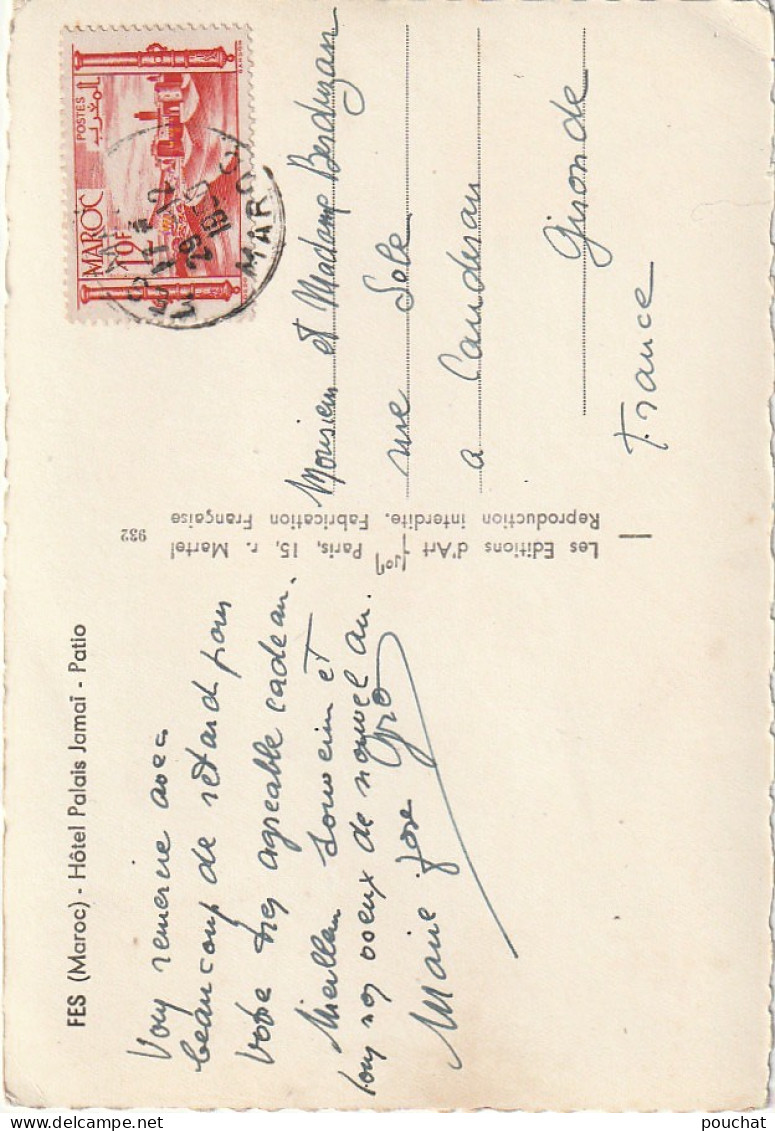 FES (Maroc) - Hôtel Palais Jamaï - Patio
Vous remercie avec
beaucoup de retard pour
votre très agréable cadeau.
Meilleur souvenir et
tous nos voeux de nouvel an.
Marie José Gro
Les Editions d'Art Paris, 15, r. Martel
Reproduction interdite. Fabrication Française
932
POSTES
المغرب
MAROC
10F
GANDON
17
12
MAR
Monsieur et Madame Berduzan
rue Sole
a Cauderan
Gironde
France
pouchat